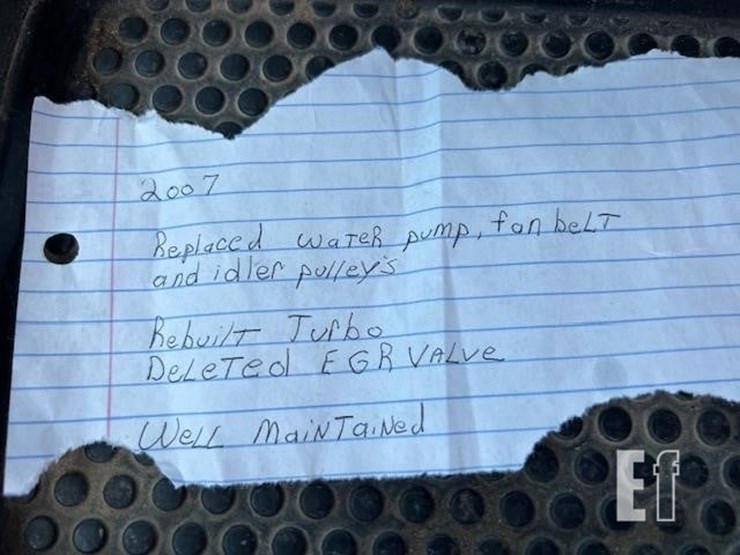 2007
Replaced water pump, fan belt
and idler pulley's
Rebuilt Turbo
Deleted EGR Valve
Well Maintained
Ef